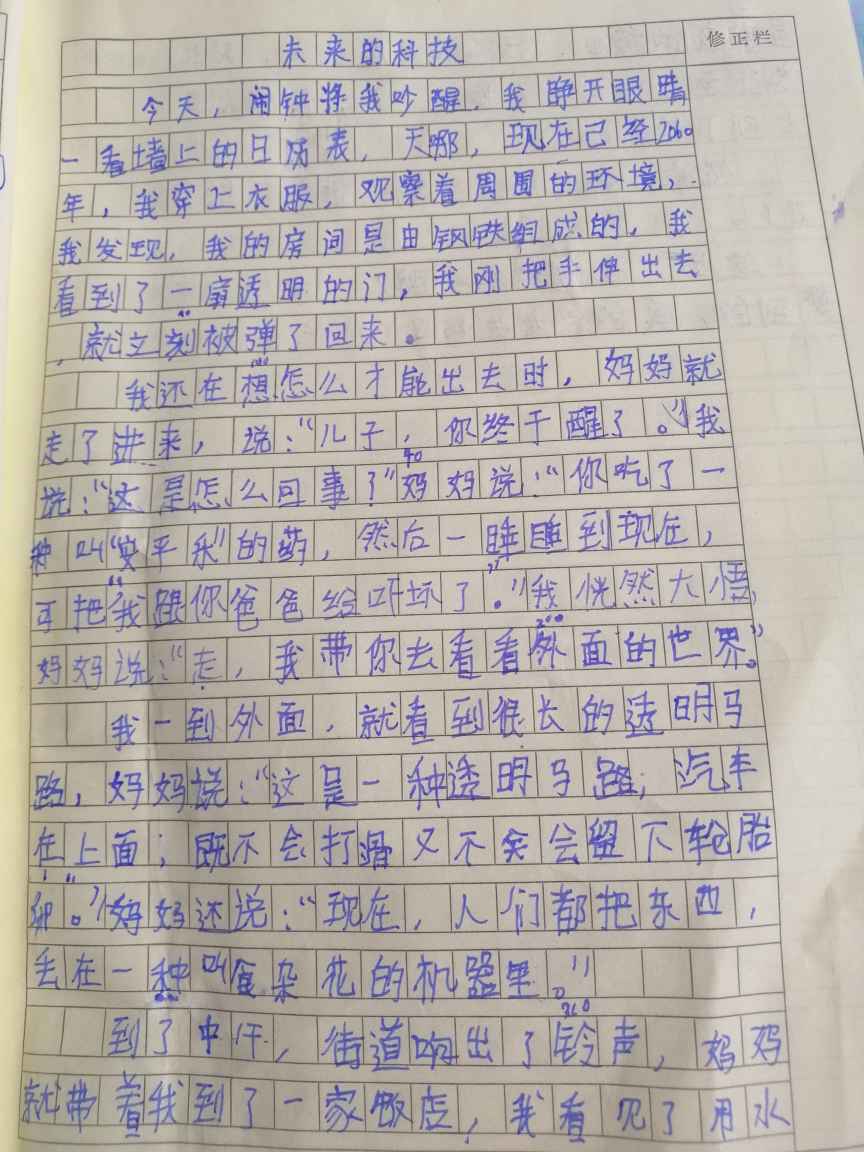 未来的科技
修正栏
今天，闹钟将我吵醒，我睁开眼睛
一看墙上的日历表，天哪，现在已经2060
年，我穿上衣服，观察着周围的环境，
我发现，我的房间是由钢铁组成的，我
看到了一扇透明的门，我刚把手伸出去
，就立刻被弹了回来。
我还在想怎么才能出去时，妈妈就
走了进来，说：“儿子，你终于醒了。”我
说：“这是怎么回事？”妈妈说：“你吃了一
种叫“安平乐”的药，然后一睡睡到现在，
可把我跟你爸爸给吓坏了。”我恍然大悟，
妈妈说：“走，我带你去看看外面的世界。”
我一到外面，就看到很长的透明马
路，妈妈说：“这是一种透明马路，汽车
在上面；既不会打滑又不会留下轮胎
印。”妈妈还说：“现在，人们都把东西，
丢在一种叫复杂化的机器里。”
到了中午，街道响出了铃声，妈妈
就带着我到了一家饭店，我看见了用水